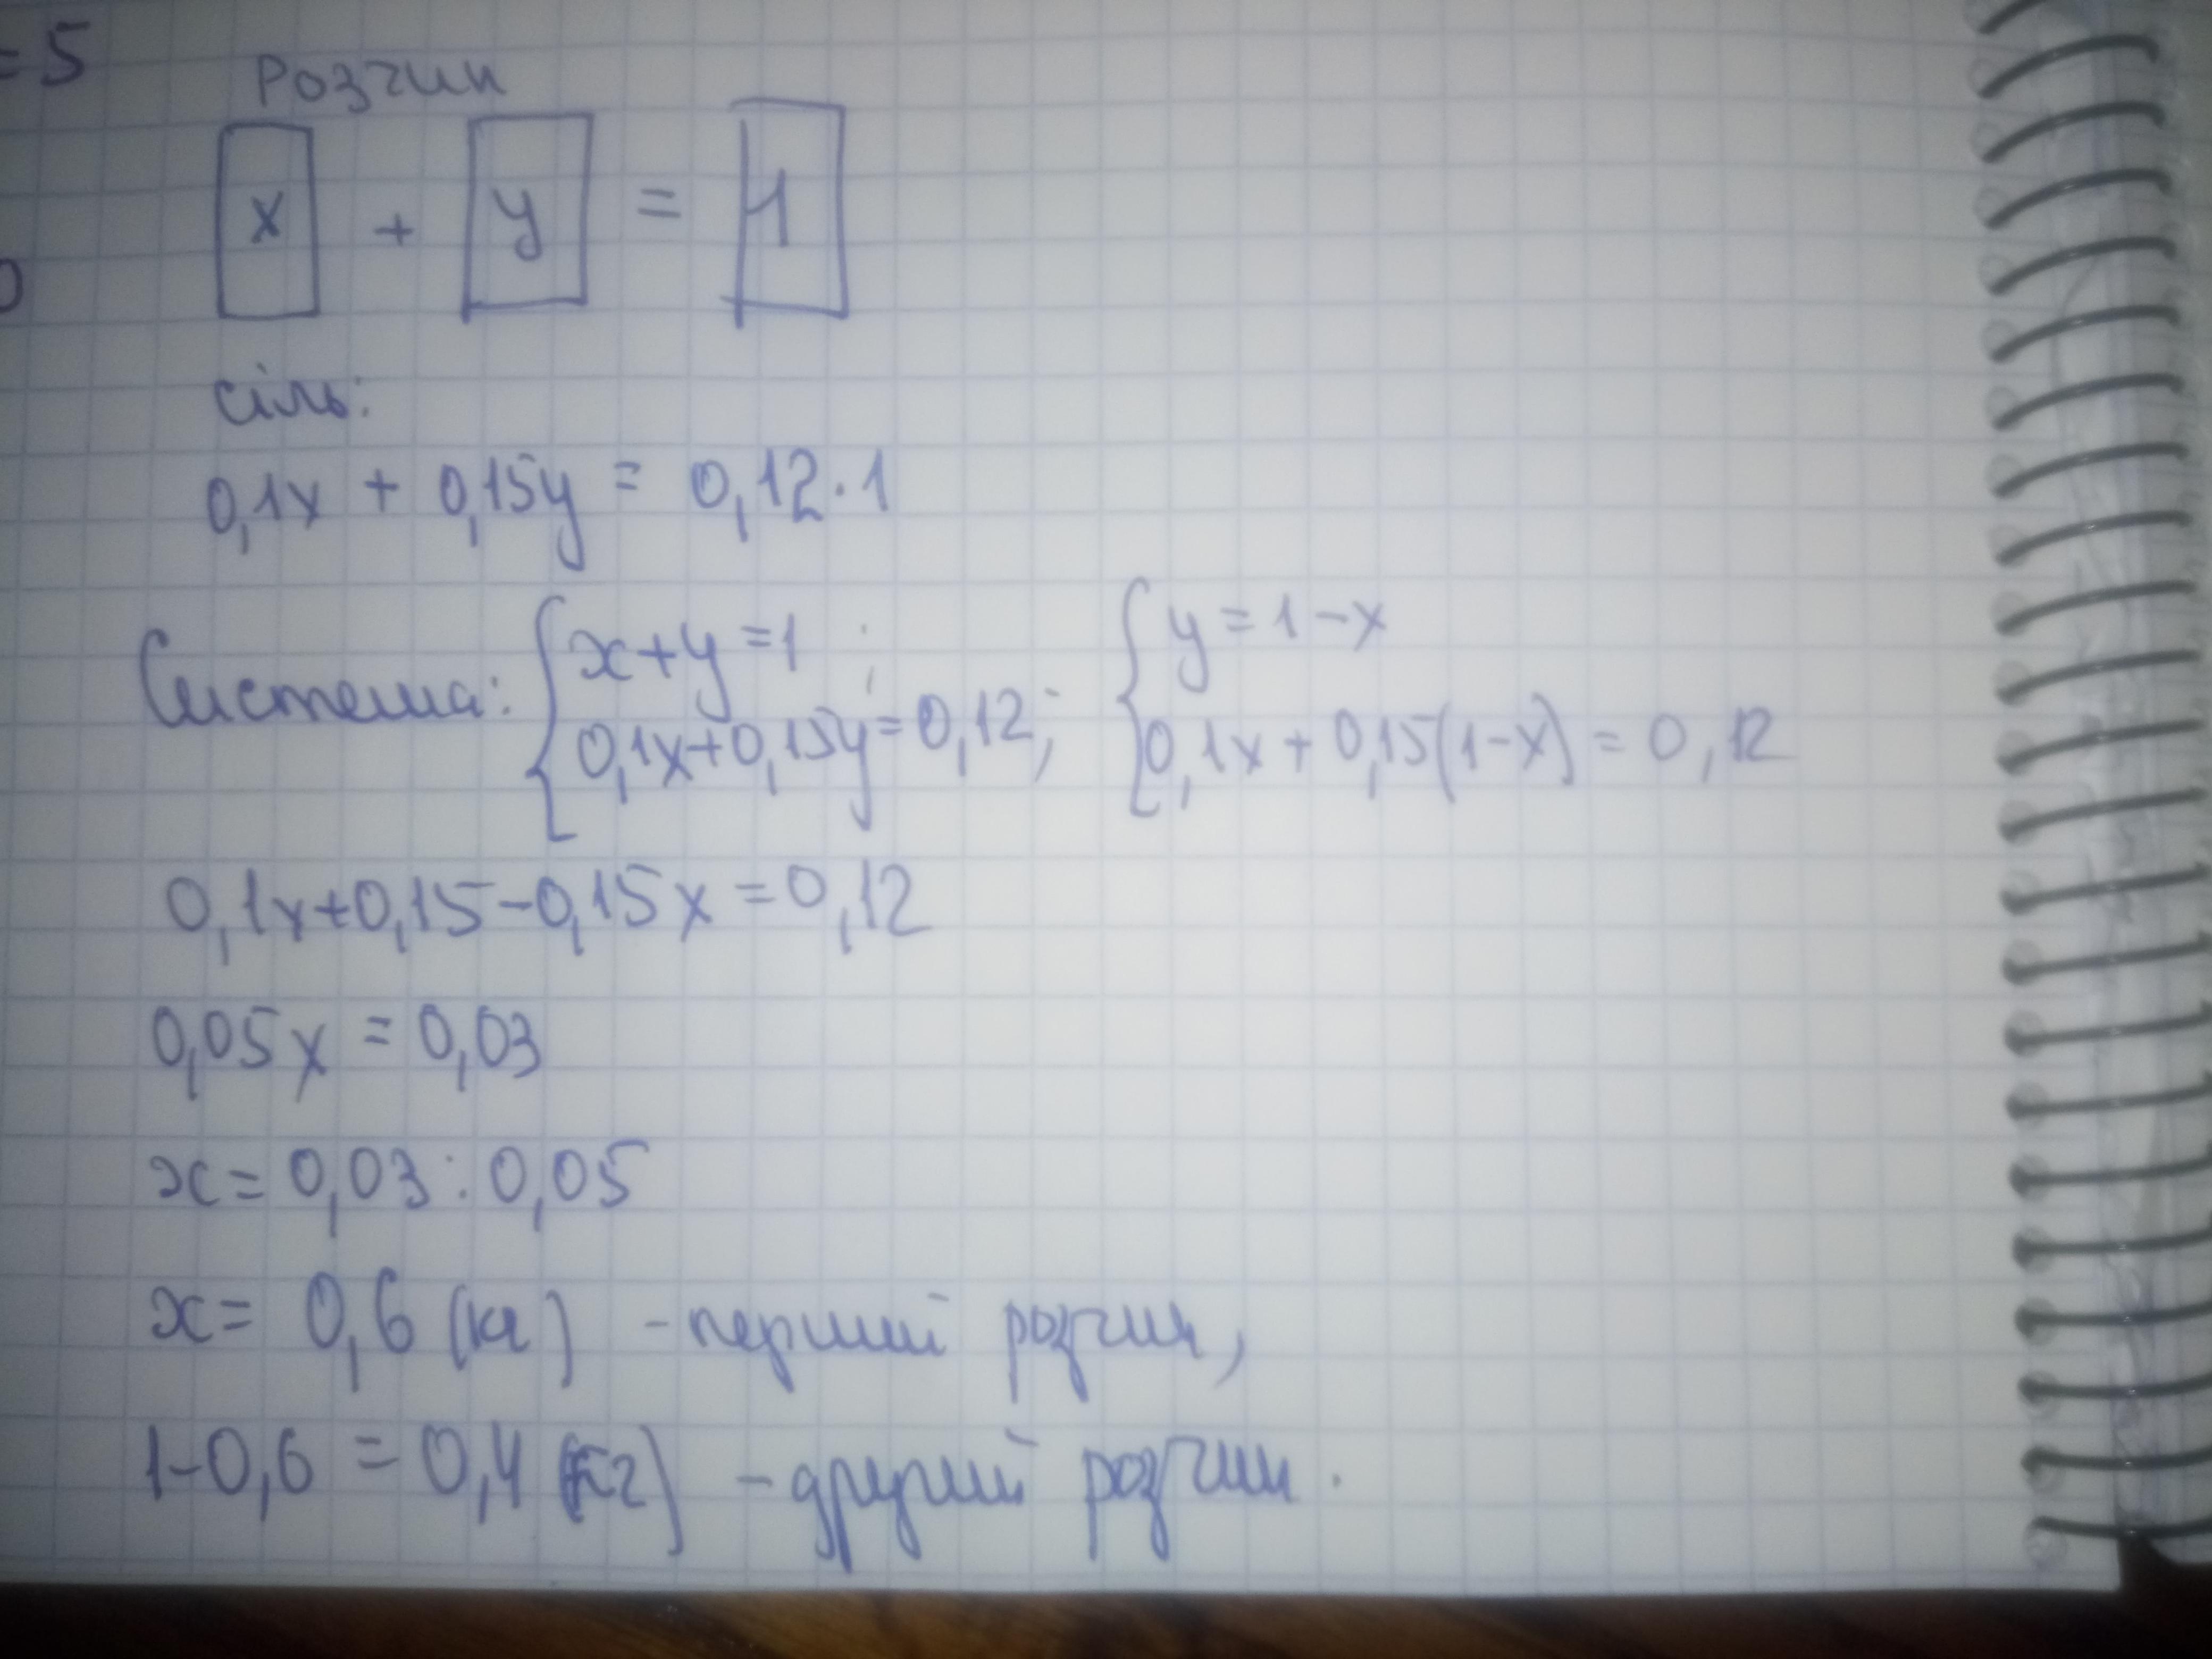 =5
Розчин
x + y = 1
сіль:
0,1x + 0,15y = 0,12·1
Система: { x+y=1 ; { y=1-x
0,1x+0,15y=0,12; 0,1x+0,15(1-x)=0,12
0,1x+0,15-0,15x=0,12
0,05x=0,03
x=0,03:0,05
x= 0,6 (кг) - перший розчин,
1-0,6 = 0,4 (кг) - другий розчин.